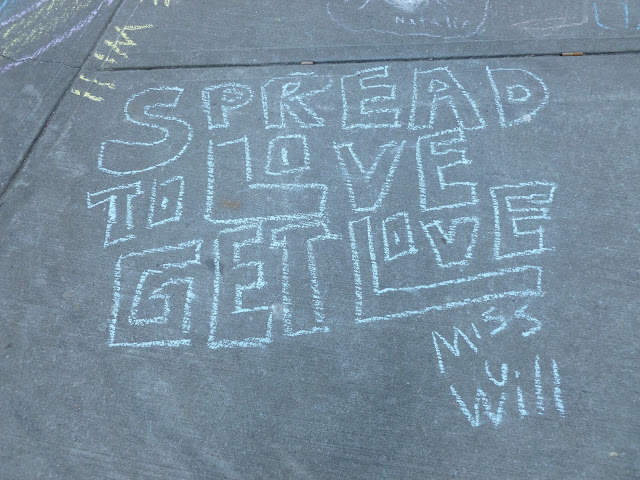 Natalie
SPREAD
LOVE
TO
GET LOVE
Miss
U
Will